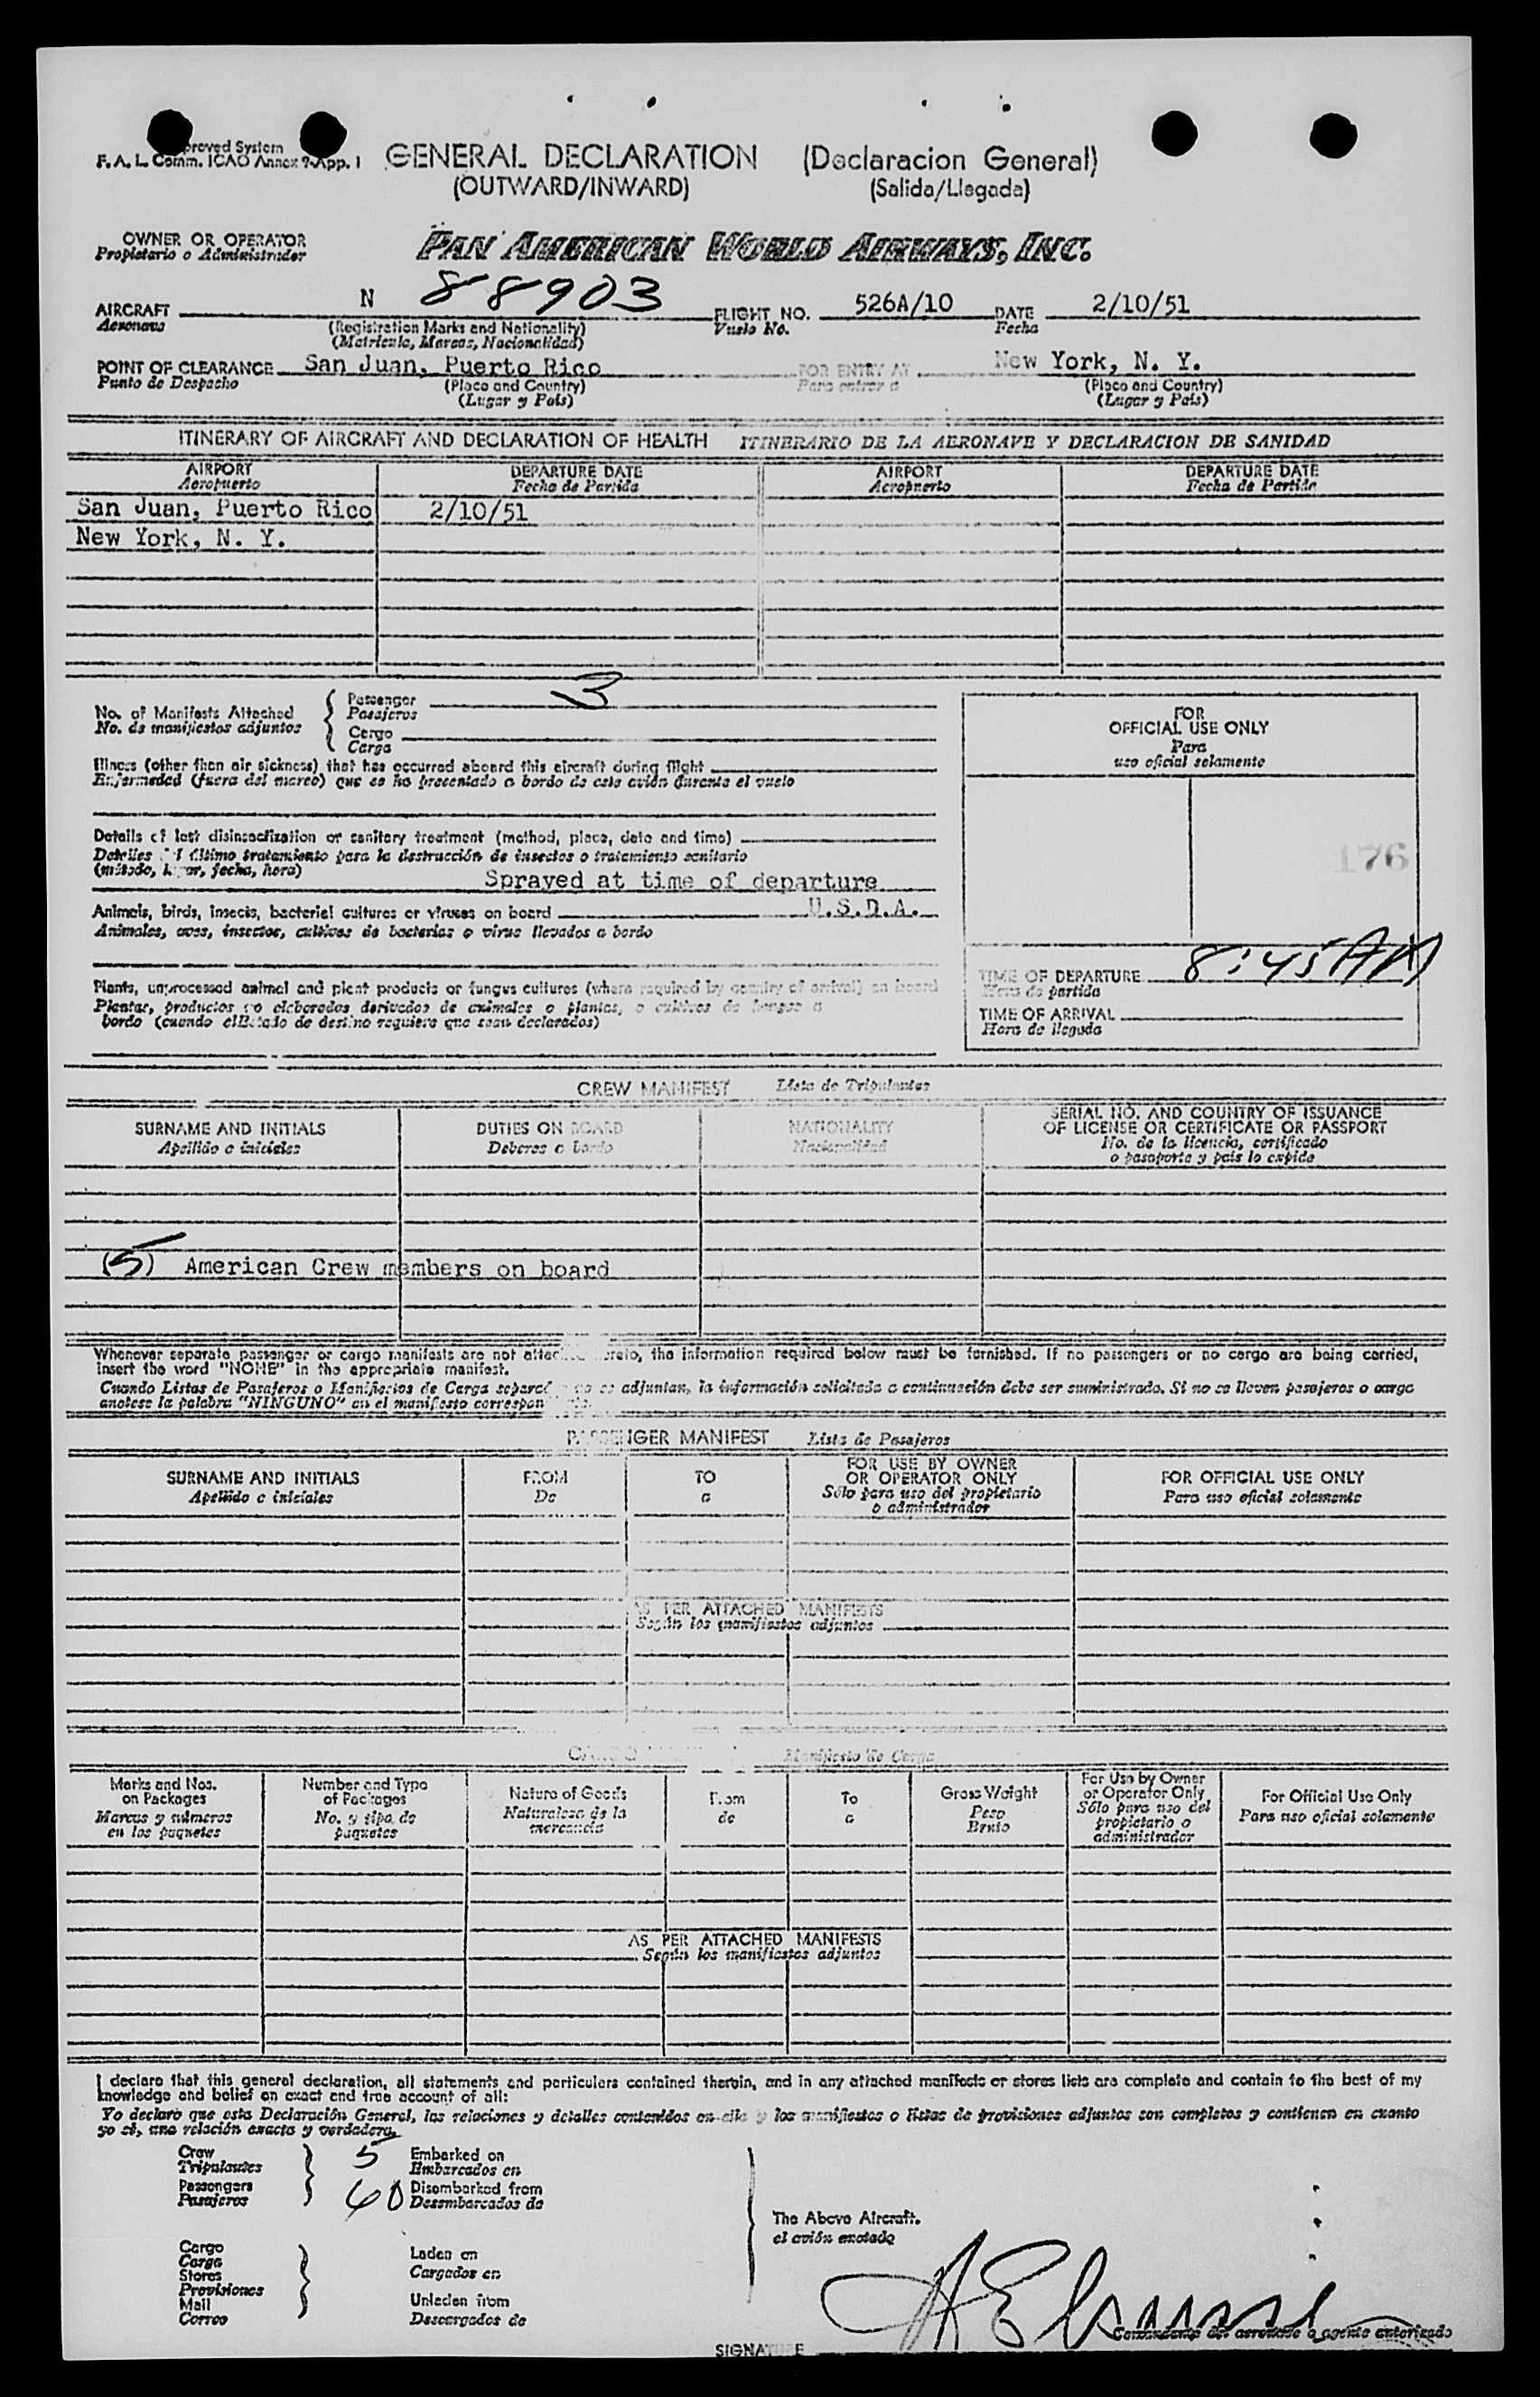 proved System
F. A. L. Comm. ICAO Annex 9-App. 1
GENERAL DECLARATION (Declaracion General)
(OUTWARD/INWARD) (Salida/Llegada)
OWNER OR OPERATOR
Propietario o Administrador
PAN AMERICAN WORLD AIRWAYS, INC.
AIRCRAFT N 88903 FLIGHT NO. 526A/10 DATE 2/10/51
Aeronave (Registration Marks and Nationality) Vuelo No. Fecha
(Matricula, Marcas, Nacionalidad)
POINT OF CLEARANCE San Juan, Puerto Rico FOR ENTRY AT New York, N. Y.
Punto de Despacho (Place and Country) Para entrar a (Place and Country)
(Lugar y Pais) (Lugar y Pais)
ITINERARY OF AIRCRAFT AND DECLARATION OF HEALTH ITINERARIO DE LA AERONAVE Y DECLARACION DE SANIDAD
AIRPORT DEPARTURE DATE AIRPORT DEPARTURE DATE
Aeropuerto Fecha de Partida Aeropuerto Fecha de Partida
San Juan, Puerto Rico 2/10/51
New York, N. Y.
No. of Manifests Attached
No. de manifiestos adjuntos
Passenger 3
Pasajeros
Cargo
Carga
Illness (other than air sickness) that has occurred aboard this aircraft during flight
Enfermedad (fuera del mareo) que se ha presentado a bordo de este avión durante el vuelo
Details of last disinsectization or sanitary treatment (method, place, date and time)
Detalles del último tratamiento para la destrucción de insectos o tratamiento sanitario
(método, lugar, fecha, hora)
Sprayed at time of departure
Animals, birds, insects, bacterial cultures or viruses on board U.S.D.A.
Animales, aves, insectos, cultivos de bacterias o virus llevados a bordo
Plants, unprocessed animal and plant products or fungus cultures (where required by country of arrival) on board
Plantas, productos no elaborados derivados de animales o plantas, o cultivos de hongos a
bordo (cuando el Estado de destino requiera que sean declarados)
FOR
OFFICIAL USE ONLY
Para
uso oficial solamente
176
TIME OF DEPARTURE 8:45 AM
Hora de partida
TIME OF ARRIVAL
Hora de llegada
CREW MANIFEST Lista de Tripulantes
SURNAME AND INITIALS DUTIES ON BOARD NATIONALITY SERIAL NO. AND COUNTRY OF ISSUANCE
OF LICENSE OR CERTIFICATE OR PASSPORT
Apellido e iniciales Deberes a bordo Nacionalidad No. de la licencia, certificado
o pasaporte y pais lo expide
(5) American Crew members on board
Whenever separate passenger or cargo manifests are not attached hereto, the information required below must be furnished. If no passengers or no cargo are being carried,
insert the word "NONE" in the appropriate manifest.
Cuando Listas de Pasajeros o Manifiestos de Carga separad no se adjuntan, la información solicitada a continuación debe ser suministrada. Si no se llevan pasajeros o carga
anotese la palabra "NINGUNO" en el manifiesto correspon
PASSENGER MANIFEST Lista de Pasajeros
SURNAME AND INITIALS FROM TO FOR USE BY OWNER
OR OPERATOR ONLY FOR OFFICIAL USE ONLY
Apellido e iniciales De a Sólo para uso del propietario
o administrador Para uso oficial solamente
AS PER ATTACHED MANIFESTS
Según los manifiestos adjuntos
Manifiesto de Carga
Marks and Nos.
on Packages
Marcas y números
en los paquetes
Number and Type
of Packages
No. y tipo de
paquetes
Nature of Goods
Naturaleza de la
mercancia
From
de
To
a
Gross Weight
Peso
Bruto
For Use by Owner
or Operator Only
Sólo para uso del
propietario o
administrador
For Official Use Only
Para uso oficial solamente
AS PER ATTACHED MANIFESTS
Según los manifiestos adjuntos
I declare that this general declaration, all statements and particulars contained therein, and in any attached manifests or stores lists are complete and contain to the best of my
knowledge and belief an exact and true account of all:
Yo declaro que esta Declaración General, las relaciones y detalles contenidos en ella y los manifiestos o listas de provisiones adjuntos son completos y contienen en cuanto
yo sé, una relación exacta y verdadera.
Crew 5 Embarked on
Tripulantes Embarcados en
Passengers 60 Disembarked from
Pasajeros Desembarcados de
The Above Aircraft.
el avión anotado
Cargo
Carga
Stores
Provisiones
Mail
Correo
Laden on
Cargados en
Unladen from
Descargados de
SIGNATURE
Comandante del aeronave o agente autorizado